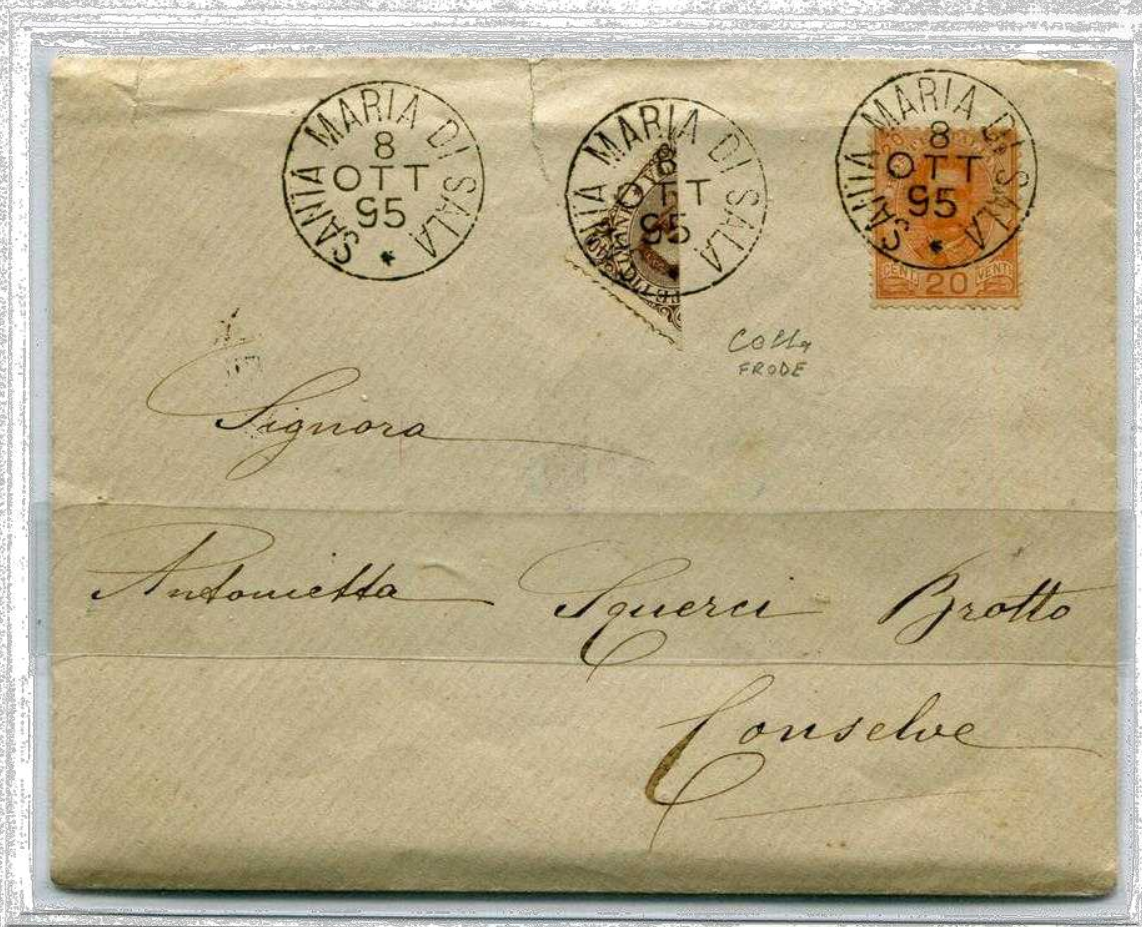 SANTA MARIA DI SALA
8
OTT
95
SANTA MARIA DI SALA
8
OTT
95
SANTA MARIA DI SALA
8
OTT
95
CENT. 20 VENTI
Colla
FRODE
Signora
Antonietta Squerci Brotto
Conselve